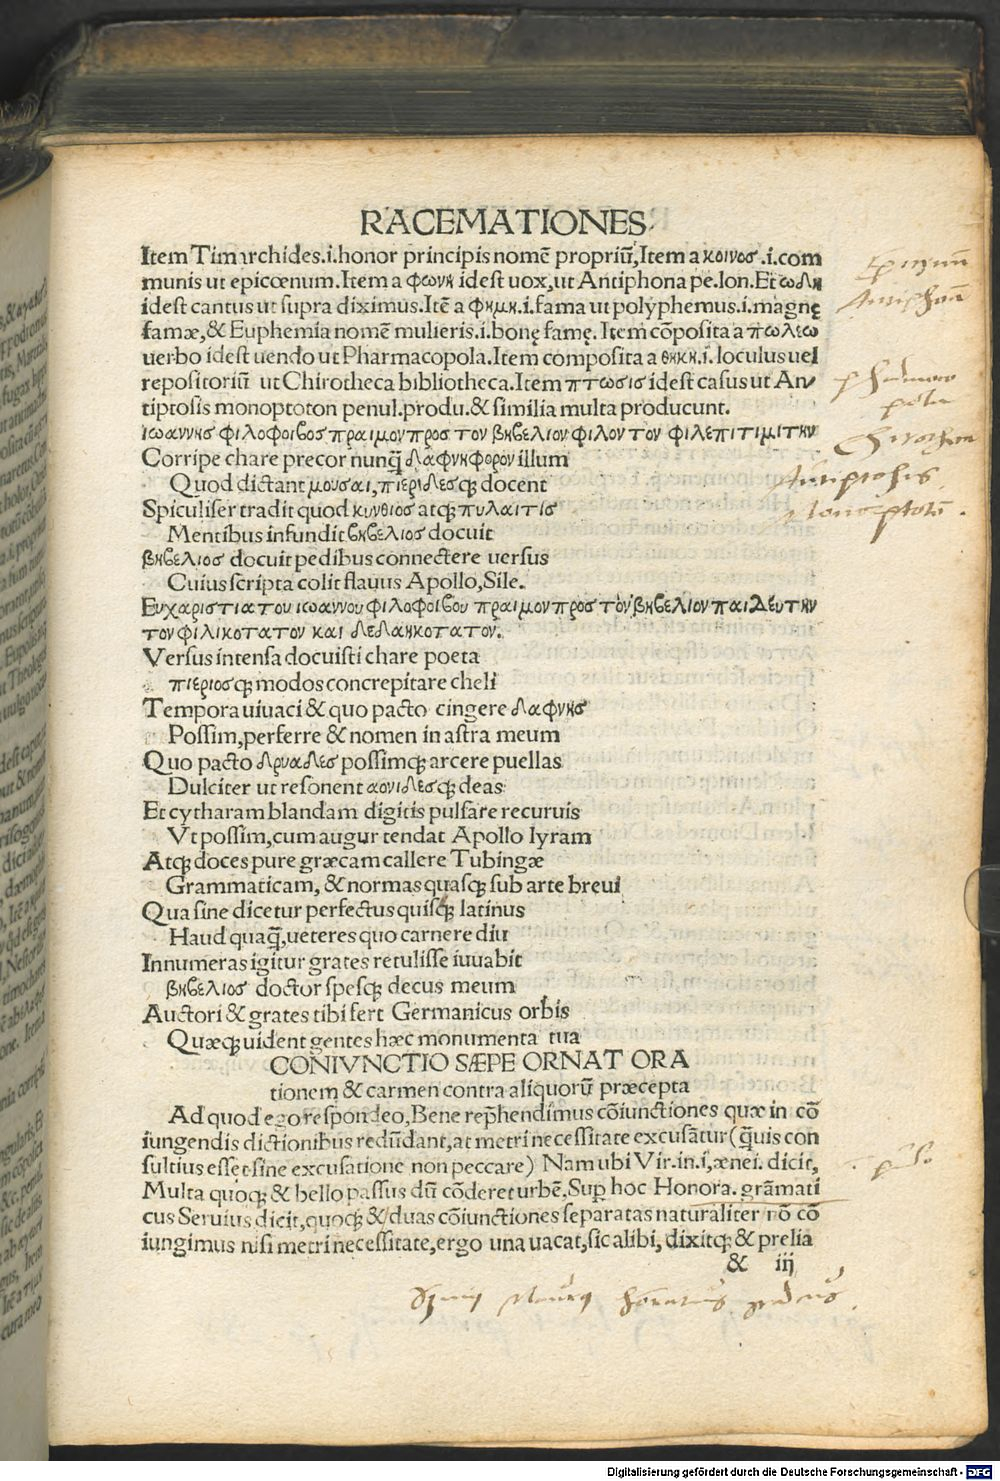 RACEMATIONES
Item Timarchides.i.honor principis nomē propriū,Item a κοινος .i.com
munis ut epicœnum.Item a φωνη idest uox,ut Antiphona pe.lon.Et ωδη
idest cantus ut supra diximus.Itē a φημη.i.fama ut polyphemus.i.magnę
famæ,& Euphemia nomē mulieris.i.bonę famę. Item cōposita a πωλεω
uerbo idest uendo ut Pharmacopola.Item composita a θηκη.i. loculus uel
repositoriū ut Chirotheca bibliotheca.Item πτωσις idest casus ut An/
tiptosis monoptoton penul.produ.& similia multa producunt.
ιωαννης φιλοφοιβος πραιμον προς τον βηβελιον φιλον τον φιλεπιτιμιτην
Corripe chare precor nunq̄ δαφνηφορον illum
Quod dictant μουσαι,πιεριδεσq; docent
Spiculifer tradit quod κυνθιος atq; πυλαιτις
Mentibus infundit βηβελιος docuit
βηβελιος docuit pedibus connectere uersus
Cuius scripta colit flauus Apollo,Sile.
Ευχαριστια του ιωαννου φιλοφοιβου πραιμον προς τον βηβελιον παιδευτην
τον φιλικοτατον και δεδαηκοτατον.
Versus intensa docuisti chare poeta
πιεριοσq; modos concrepitare cheli
Tempora uiuaci & quo pacto cingere δαφνης
Possim,perferre & nomen in astra meum
Quo pacto δρυαδες possimq; arcere puellas
Dulciter ut resonent αονιδεσq; deas
Et cytharam blandam digitis pulsare recuruis
Vt possim,cum augur tendat Apollo lyram
Atq; doces pure græcam callere Tubingæ
Grammaticam, & normas quasq; sub arte breui
Qua sine dicetur perfectus quisq; latinus
Haud quaq̄,ueteres quo carnere diu
Innumeras igitur grates retulisse iuuabit
βηβελιος doctor spesq; decus meum
Auctori & grates tibi fert Germanicus orbis
Quæq; uident gentes hæc monumenta tua
CONIVNCTIO SÆPE ORNAT ORA
tionem & carmen contra aliquorū præcepta
Ad quod ego respondeo,Bene rep̄hendimus cōiunctiones quæ in cō
iungendis dictionibus redūdant,at metri necessitate excusātur (q̄uis con
sultius esset sine excusatione non peccare) Nam ubi Vir.in.i,ænei. dicit,
Multa quoq; & bello passus dū cōderet urbē,Sup̱ hoc Honora. grāmati
cus Seruius dicit,quoq; & duas cōiunctiones separatas naturaliter nō cō
iungimus nisi metri necessitate,ergo una uacat,sic alibi, dixitq; & prelia
& iij
Antiphona
pharmaco
pola
Chirotheca
Antiptosis
Monoptoton.
Digitalisierung gefördert durch die Deutsche Forschungsgemeinschaft - DFG